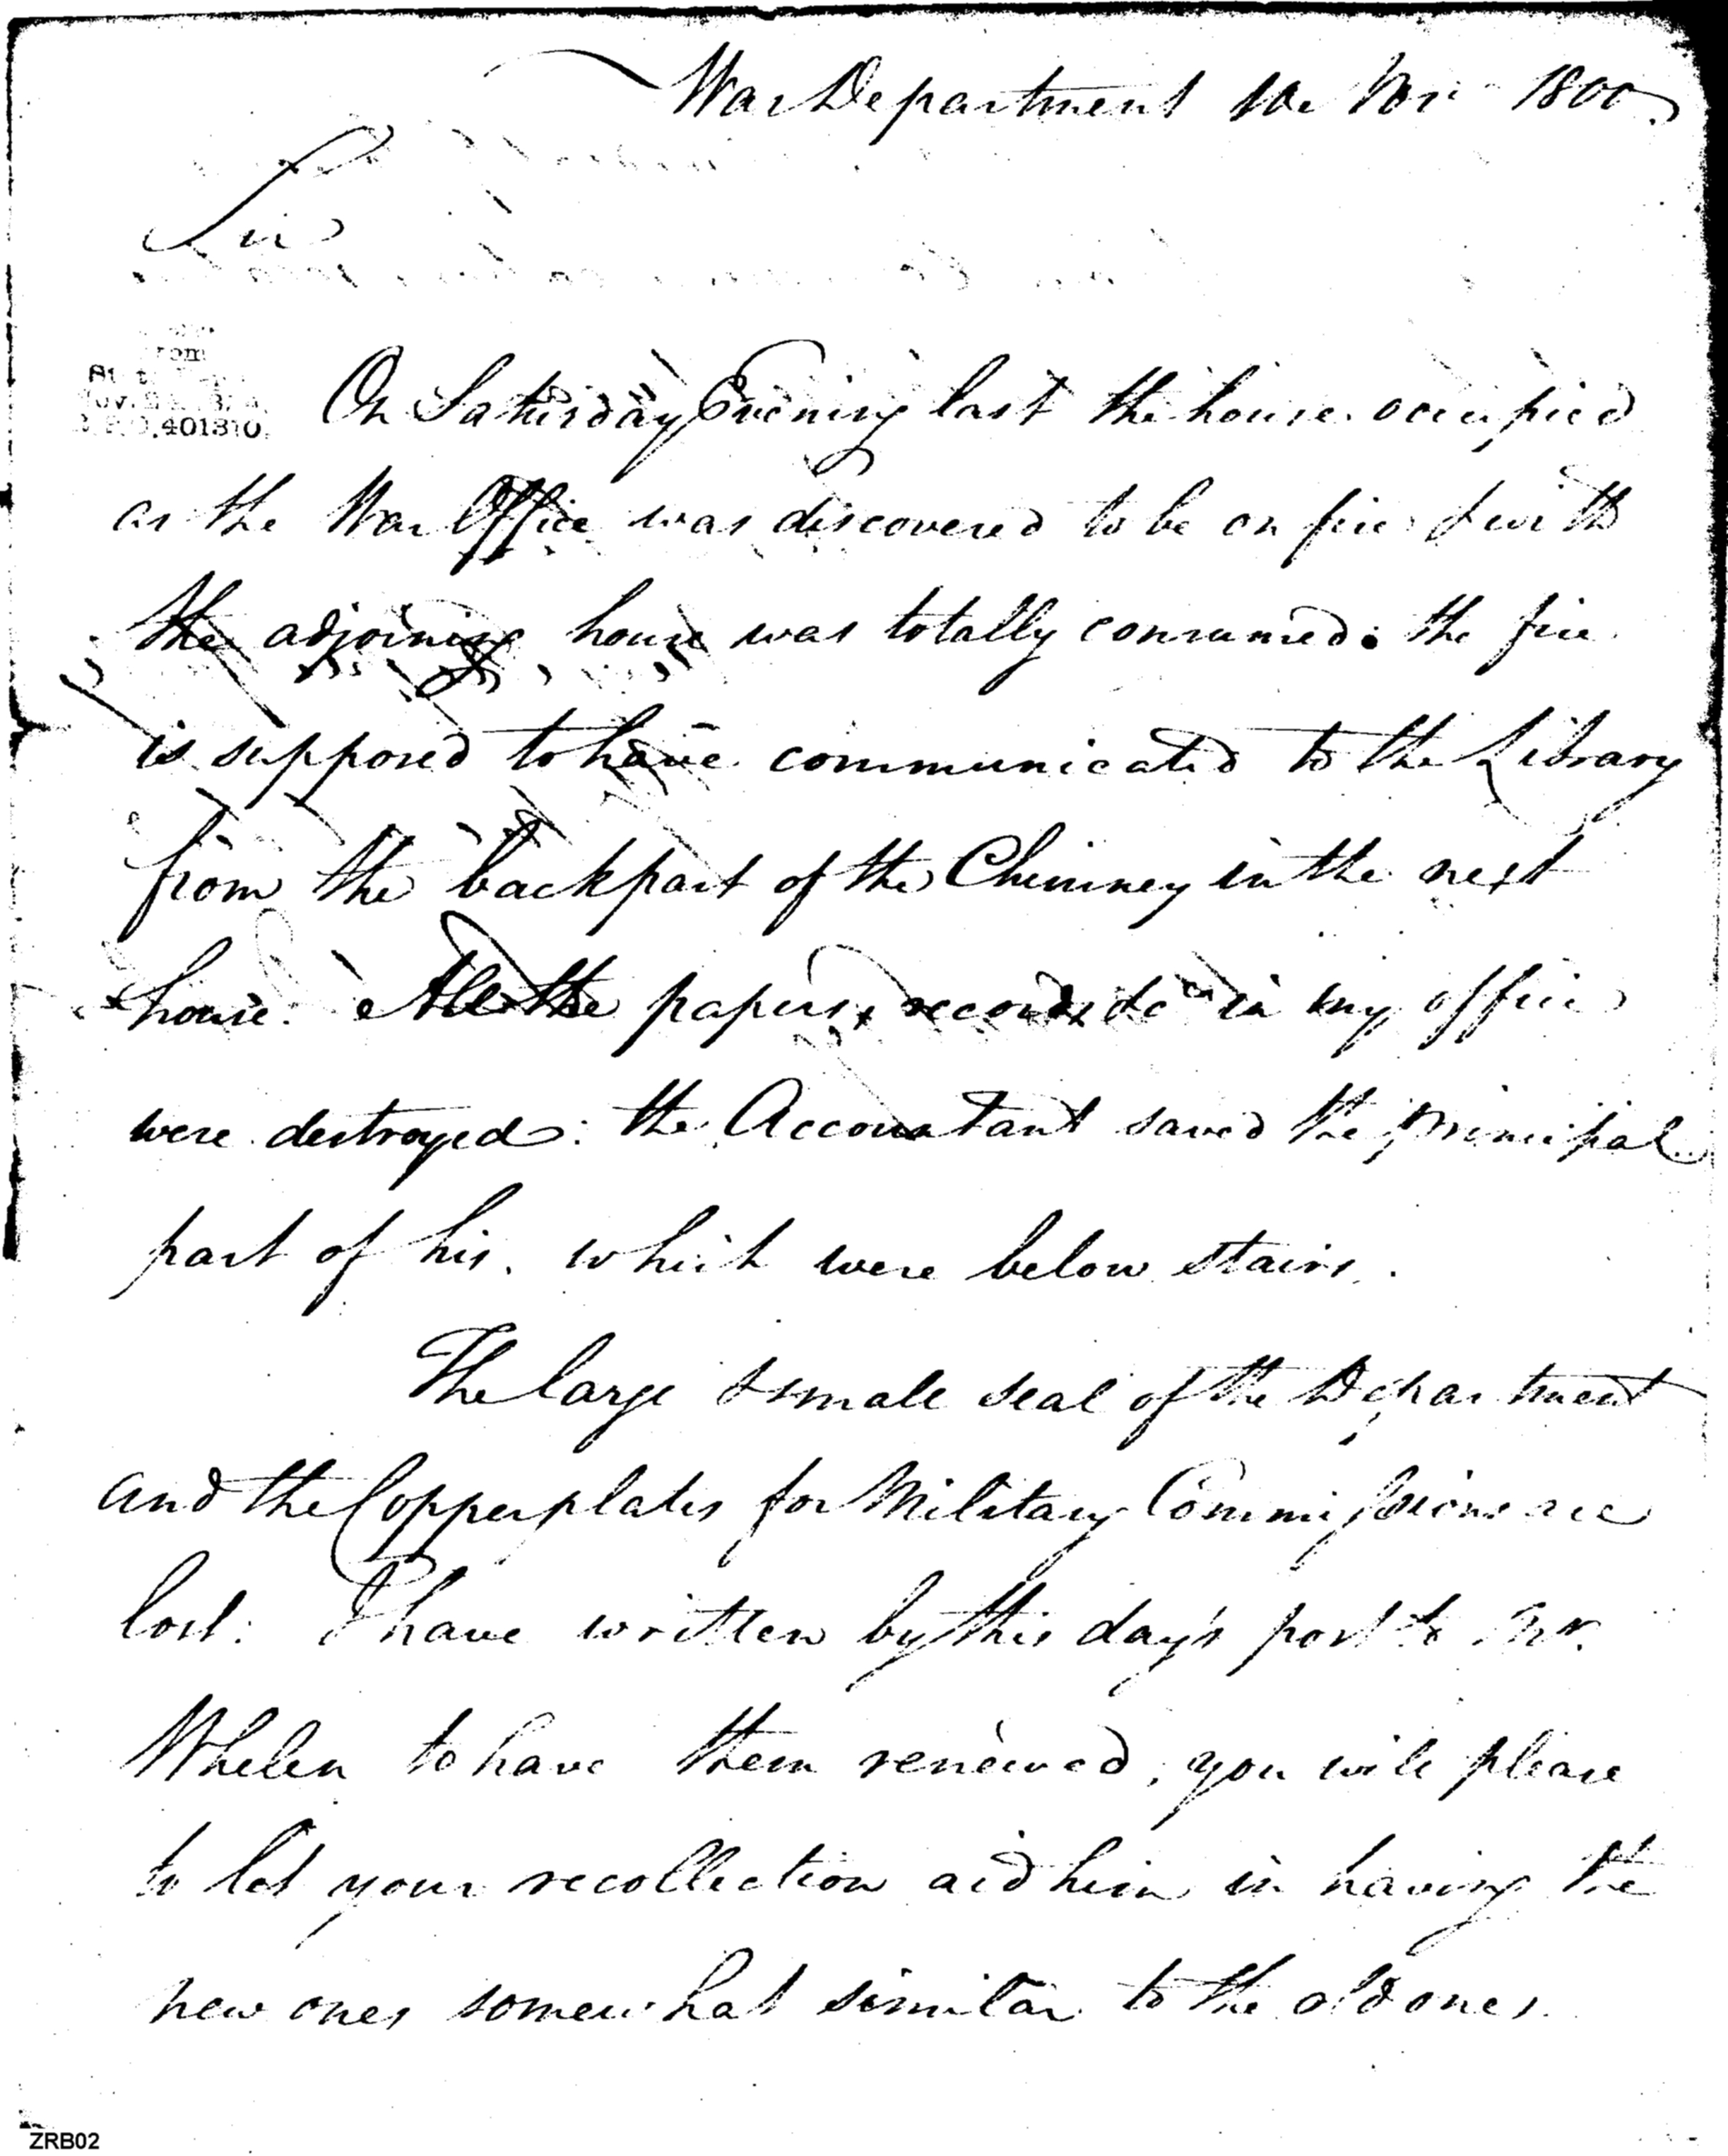 War Department 10 Nov. 1800
Sir
On Saturday Evening last the house occupied
as the War Office was discovered to be on fire & with
the adjoining house was totally consumed: the fire
is supposed to have communicated to the Library
from the back part of the Chimney in the next
house. All the papers, records &c in my office
were destroyed: the Accountant saved the principal
part of his, which were below stairs.
The large & small seal of the Department
and the Copperplates for Military Commissions are
lost. I have written by this day's post to Mr.
Whelen to have them renewed, you will please
to let your recollection aid him in having the
new ones somewhat similar to the old ones.
401310
ZRB02